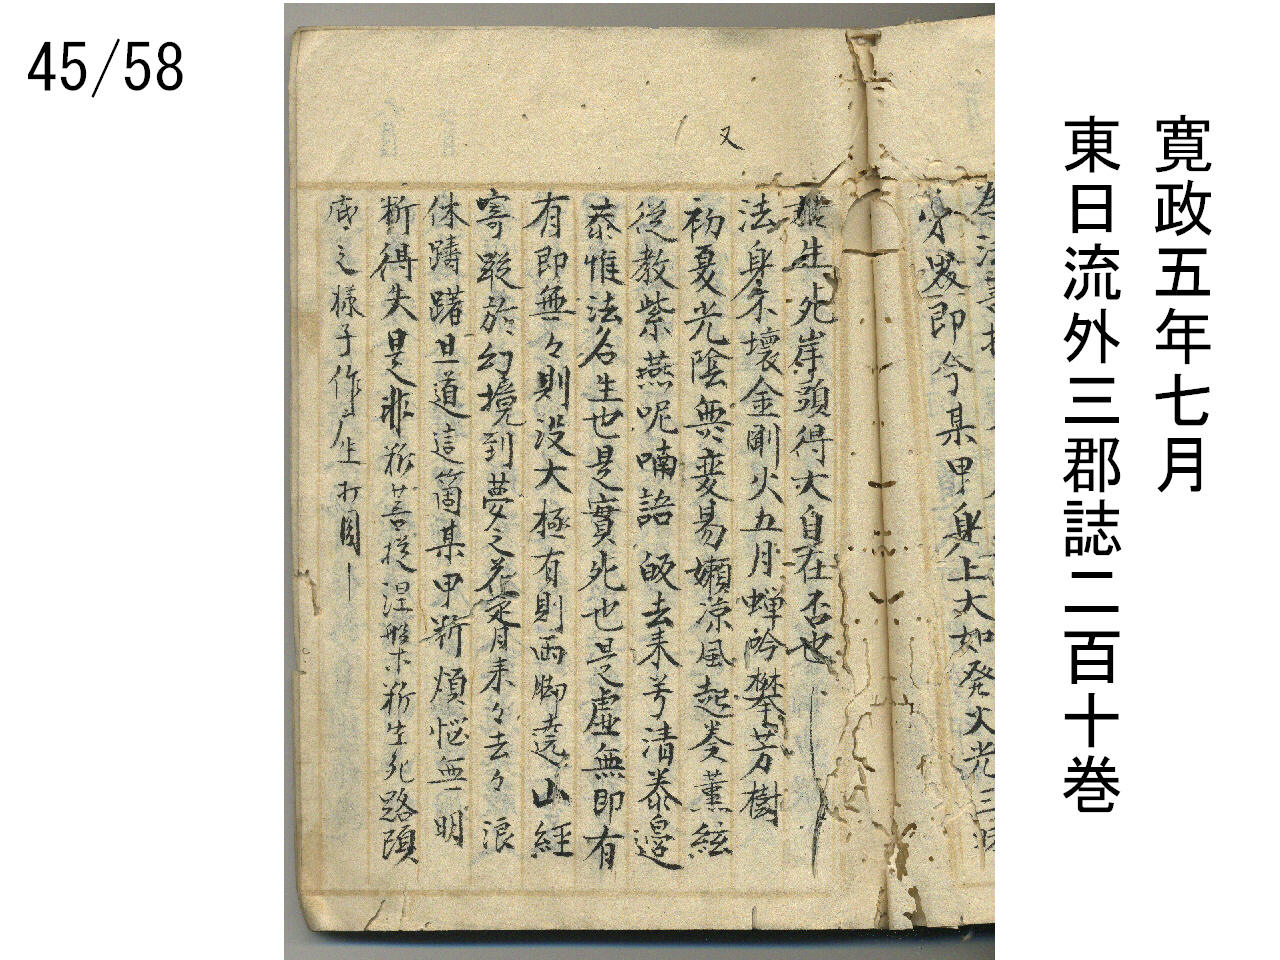 45/58
寛政五年七月
東日流外三郡誌二百十巻
即今某甲身上大如発火光三
又
生死岸頭得大自在否也
法身不壊金剛火五月蝉吟攀芳樹
初夏光陰無変易嫩涼風起奏薫絃
従教紫燕呢喃語 去来兮清泰邉
泰惟法名生也是實死也是虚無即有
有即無々則没大極有則両脚遶山経
寄蹤於幻境到夢之花定月来々去々浪
休躊躇旦道這箇某甲断煩悩無明
断得失是非 菩提涅槃 生死路頭
底之様子作麼生打圓